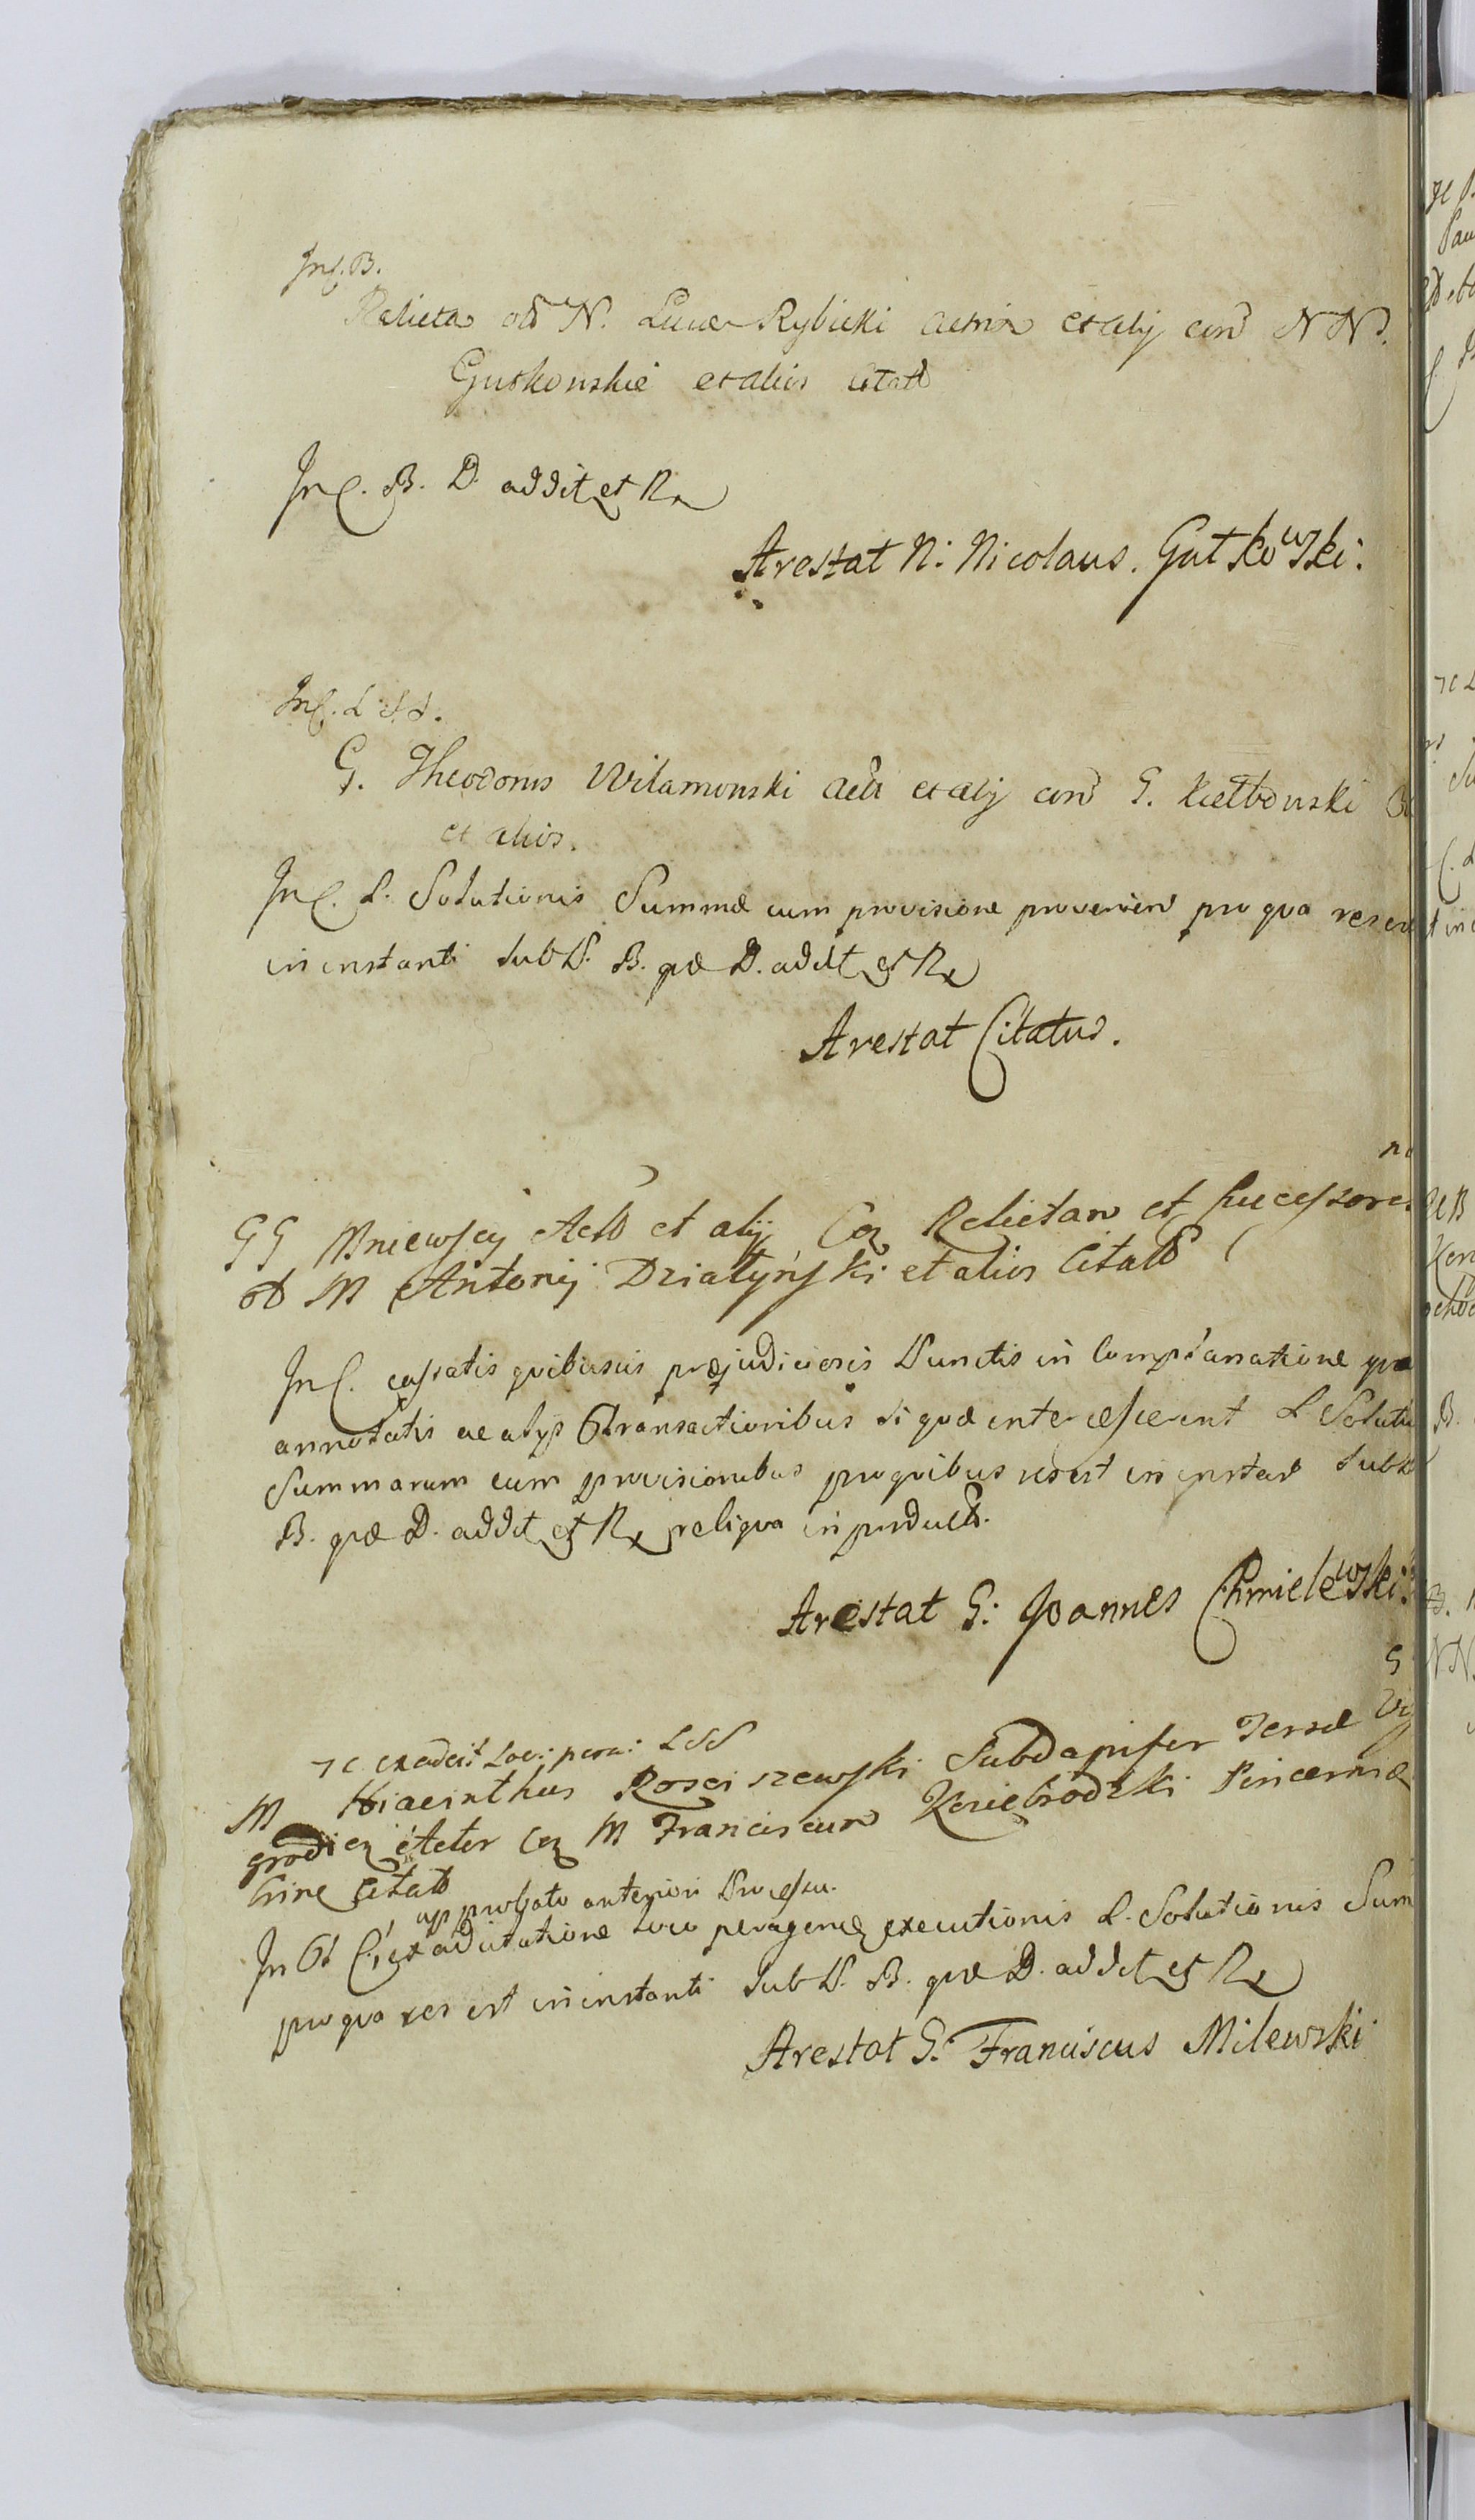 In C. B.
Relicta olim N. Lucae Rybicki actrix et alij con NN.
Gutkowskie et alios Citatos
In C. B. D. addit et Rx
Arestat N: Nicolaus. Gutkowski:
In C. L SS.
G. Theodorus Wilamowski actor et alij con G. Kiełbowski
et alios.
In C. L. Solutionis Summae cum provisione provenien pro qva res est
in instanti sub P. B. qvae D. addit et Rx
Arestat Citatus.
GG Mniewscy Acto et alij Con Relictam et Successores
ol M Antonij Działyński et alios Citatos
In C. cassatis qvibusvis praejudiciosis Punctis in Complanatione
annotatis ac alijs Transactionibus si qvae intercesserint L Soluti
Summarum cum provisionibus pro qvibus res est in instan sub
B. qvae D. addit et Rx reliqva in producto.
Arestat G: Joannes Chmielewski:
M Hiacinthus Rosciszewski Subdapifer Terrae
grodien Actor Con M Franciscum Xeniebrodzki Pincernae
Citato
approbato anteriori Processu.
loco peragenae executionis L. Solutionis Sum
pro qva res est in instanti sub P. B. qvae D. addit et Rx
Arestat G. Franciscus Milewski